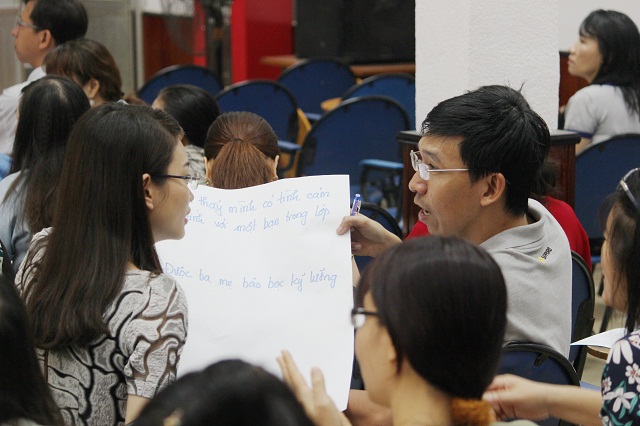 thấy mình có tình cảm
với một bạn trong lớp
Được ba, mẹ bảo bọc kỹ lưỡng